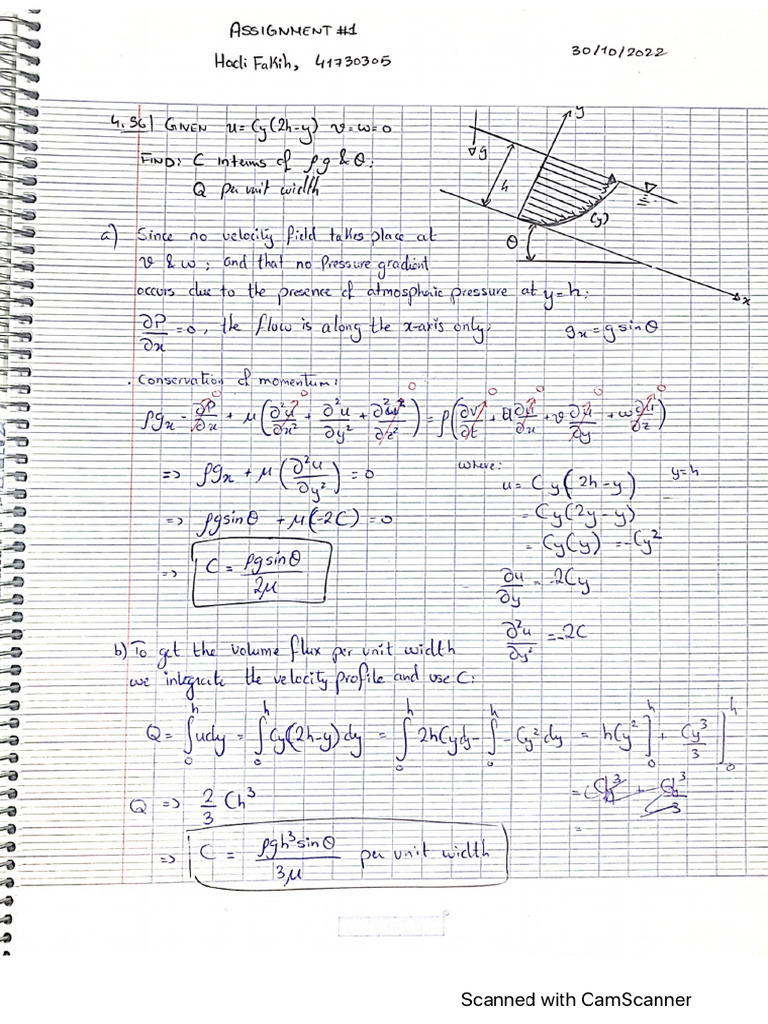 ASSIGNMENT #1
Hadi Fakih, 41730305
30/10/2022
4.36| GIVEN u = Cy(2h-y) v=w=0
FIND: C interms of ρg & θ.
Q per unit width
y
g
h
(y)
θ
x
a) Since no velocity field takes place at
v & w ; and that no Pressure gradient
occurs due to the presence of atmospheric pressure at y=h:
∂P/∂x = 0, the flow is along the x-axis only; gx = g sinθ
. Conservation of momentum:
ρgx - ∂P/∂x + μ(∂²u/∂x² + ∂²u/∂y² + ∂²u/∂z²) = ρ(∂v/∂t + u∂u/∂x + v∂u/∂y + w∂u/∂z)
0 0 0 0 0 0 0
=> ρgx + μ(∂²u/∂y²) = 0
=> ρgsinθ + μ(-2C) = 0
=> C = ρgsinθ/2μ
where:
u = Cy(2h-y) y=h
= Cy(2y-y)
= Cy(y) = -Cy²
∂u/∂y = -2Cy
∂²u/∂y² = -2C
b) To get the volume flux per unit width
we integrate the velocity profile and use C:
Q = ∫₀ʰ udy = ∫₀ʰ Cy(2h-y)dy = ∫₀ʰ 2hCydy - ∫₀ʰ -Cy²dy = hCy²]₀ʰ + Cy³/3]₀ʰ
Q => 2/3 Ch³
=
=> C = ρgh³sinθ/3μ per unit width
Scanned with CamScanner